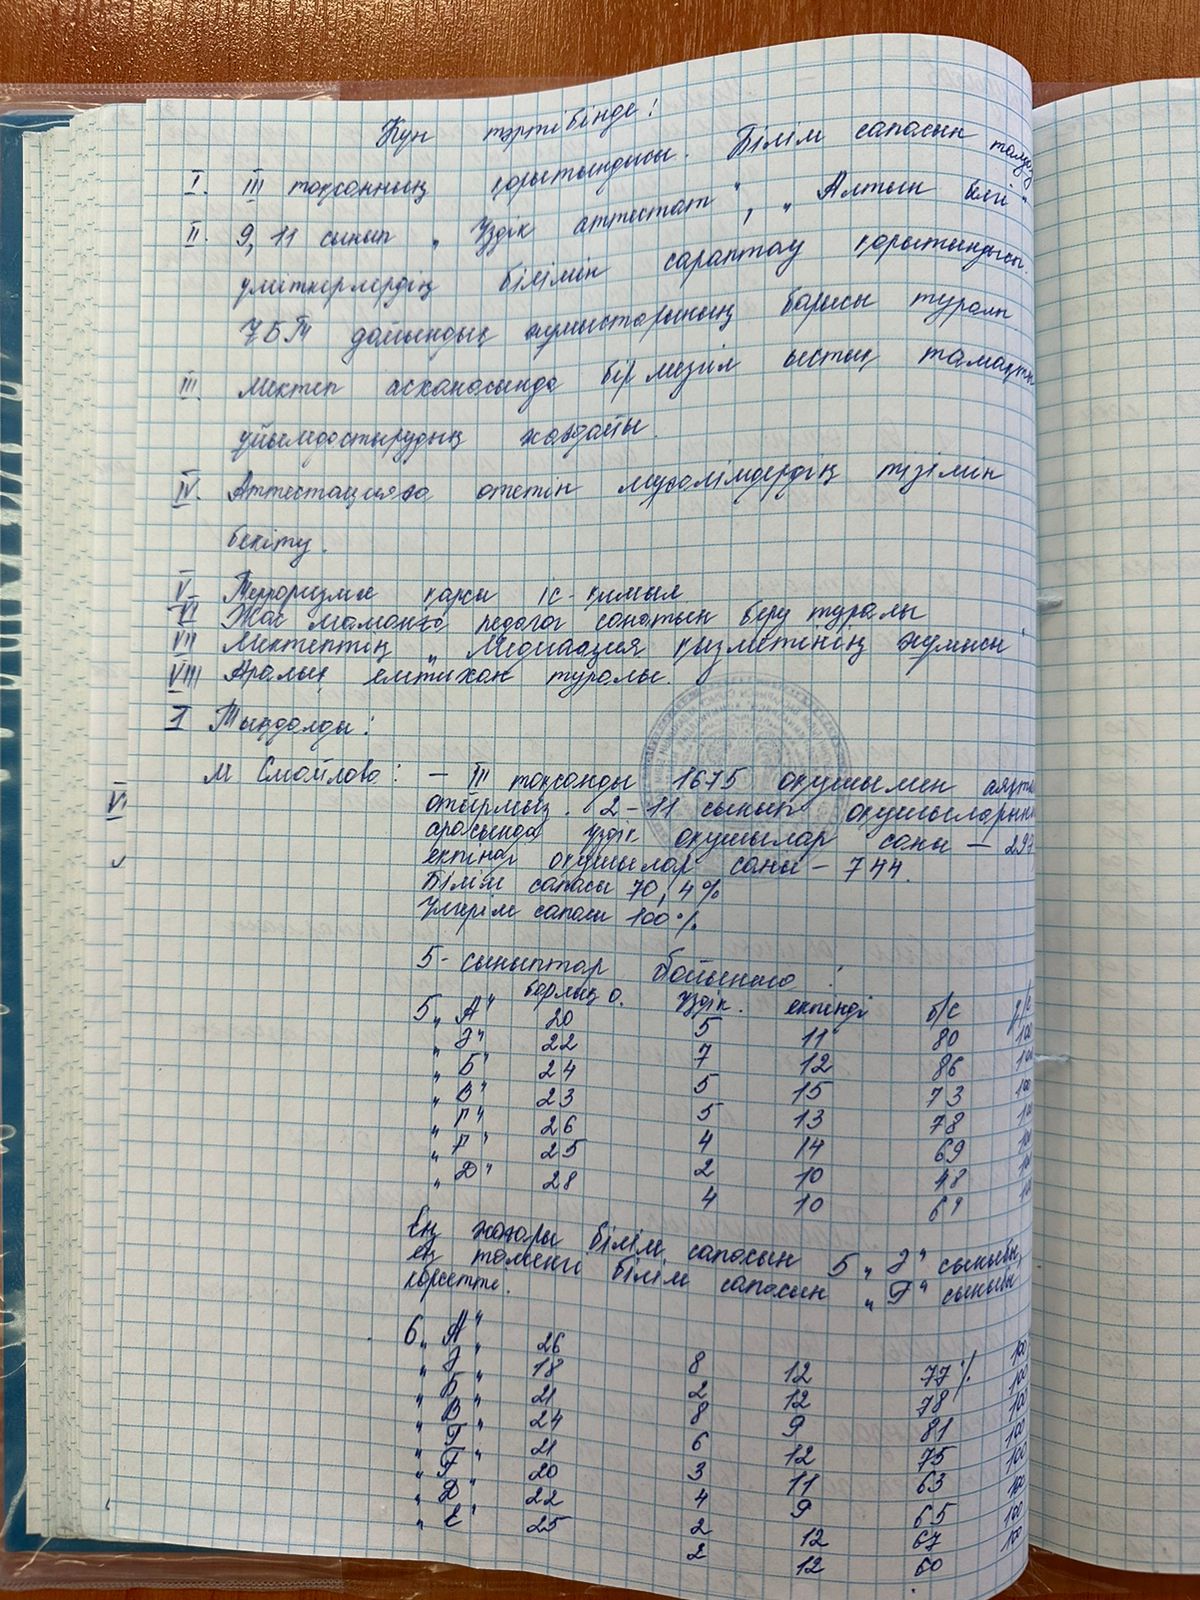 Күн тәртібінде:
I. III тоқсанның қорытындысы. Білім сапасын талдау
II. 9, 11 сынып „Үздік аттестат", „Алтын белгі"
үміткерлердің білімін сараптау қорытындысы.
ҰБТ дайындық жұмыстарының барысы туралы
III. Мектеп асханасында бір мезгіл ыстық тамақты
ұйымдастырудың жағдайы.
IV. Аттестацияға өтетін мұғалімдердің тізімін
бекіту.
V Терроризмге қарсы іс-қимыл
VI Жас маманға педагог санатын беру туралы
VII Мектептің „Медиация қызметінің жұмысы
VIII Аралық емтихан туралы.
I Тыңдалды:
М Смайлова: – III тоқсанды 1675 оқушымен аяқтап
отырмыз. 2-11 сынып оқушыларының
арасында үздік оқушылар саны – 297
екпінді оқушылар саны – 744.
Білім сапасы 70,4%
Үлгерім сапасы 100%
5-сыныптар бойынша:
барлық о. үздік. екпінді б/с ү/с
5 „А" 20 5 11 80 100
„Ә" 22 7 12 86 100
„Б" 24 5 15 73 100
„В" 23 5 13 78 100
„Г" 26 4 14 69 100
„Ғ" 25 2 10 48 100
„Д" 28 4 10 61 100
Ең жоғары білім сапасын 5 „Ә" сыныбы,
ең төменгі білім сапасын „Ғ" сыныбы
көрсетті.
6 „А" 26 8 12 77% 100
„Ә" 18 2 12 78 100
„Б" 21 8 9 81 100
„В" 24 6 12 75 100
„Г" 21 3 11 63 100
„Ғ" 20 4 9 65 100
„Д" 22 2 12 67 100
„Е" 25 2 12 60 100
VI